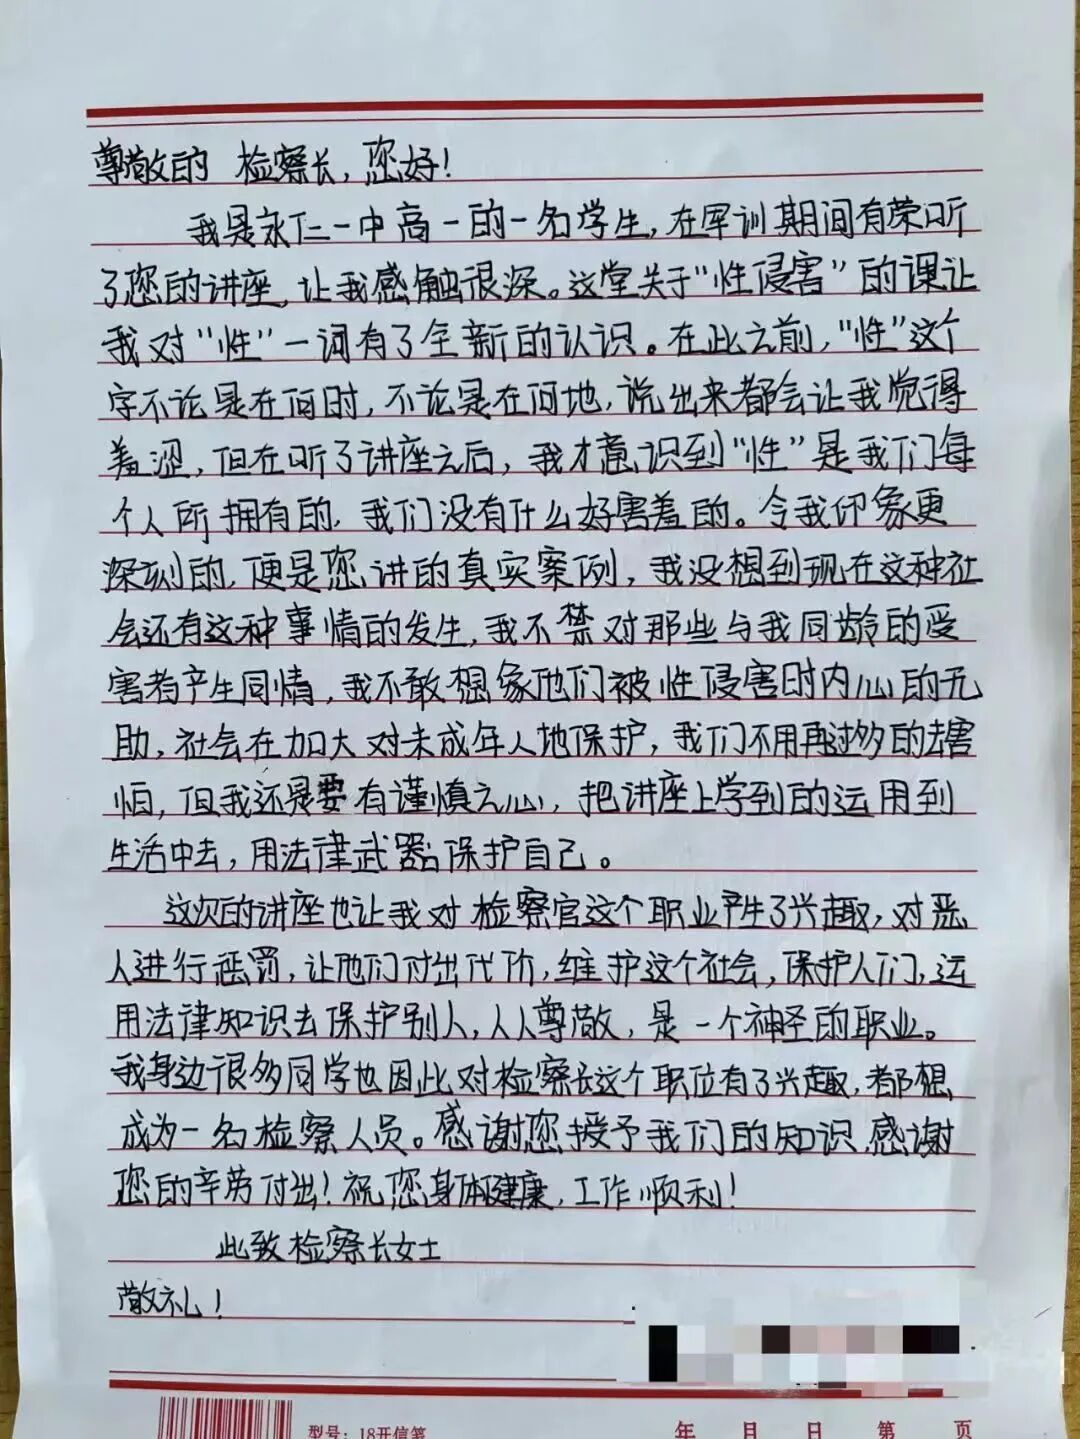 尊敬的 检察长,您好!
我是永仁一中高一的一名学生,在军训期间有荣听
了您的讲座,让我感触很深。这堂关于“性侵害”的课让
我对“性”一词有了全新的认识。在此之前,“性”这个
字不论是在何时,不论是在何地,说出来都会让我觉得
羞涩,但在听了讲座之后,我才意识到“性”是我们每
个人所拥有的,我们没有什么好害羞的。令我印象更
深刻的,便是您讲的真实案例,我没想到现在这种社
会还有这种事情的发生,我不禁对那些与我同龄的受
害者产生同情,我不敢想像他们被性侵害时内心的无
助,社会在加大对未成年人地保护,我们不用再过多的去害
怕,但我还是要有谨慎之心,把讲座上学到的运用到
生活中去,用法律武器保护自己。
这次的讲座也让我对检察官这个职业产生了兴趣,对恶
人进行惩罚,让他们付出代价,维护这个社会,保护人们,运
用法律知识去保护别人,人人尊敬,是一个神圣的职业。
我身边很多同学也因此对检察长这个职位有了兴趣,都想
成为一名检察人员。感谢您授予我们的知识,感谢
您的辛劳付出!祝您身体健康,工作顺利!
此致检察长女士
敬礼!
型号:18开信笺 年 月 日 第 页